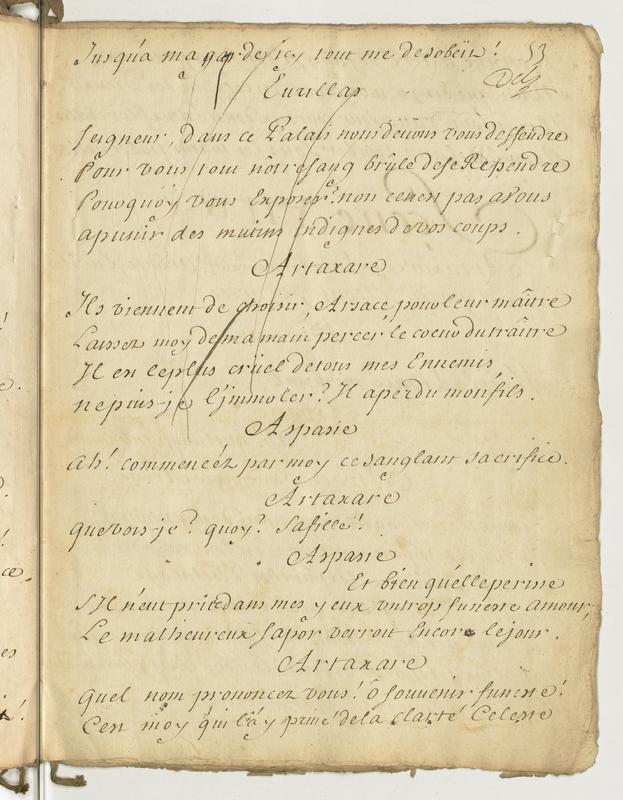 Jusqu'a ma garde icy tout me desobéit! 53
Eurillas
Seigneur, dans ce Palais nous deuons vous deffendre
Pour vous tout nôtre sang brûle de se Rependre
Pouvquoy vous Exposer? non ce n'est pas avous
a punir des mutins indignes de vos coups.
Artaxare
Ils viennent de choisir, Arsace, pour leur maître
Laissez moy de ma main percer le coeur du traître
Il est le plus cruel de tous mes Ennemis,
ne puis-je l'jmmoler? Il a perdu mon fils.
Aspasie
ah! commencéz par moy ce sanglant sacrifice.
Artaxare
que vois-je? quoy? sa fille!
Aspasie
Et bien qu'elle perisse
S'Il n'eut pris dans mes yeux vn trop funeste amour,
Le malheureux Sapor verroit Encore le jour.
Artaxare
Quel nom prononcez vous! ô souvenir funeste!
C'est moy qui l'ay privé de la clarté Celeste